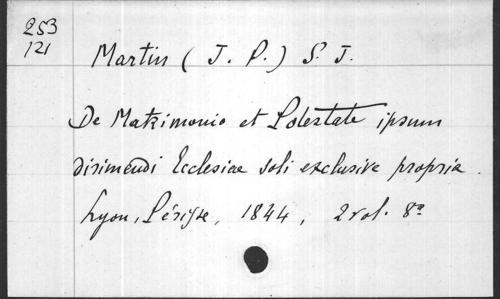 253
121
Martin (J. P.) S. J.
De Matrimonio et Potestate ipsum
dirimendi Ecclesiae soli exclusive propria.
Lyon, Périsse, 1844, 2 vol. 8º